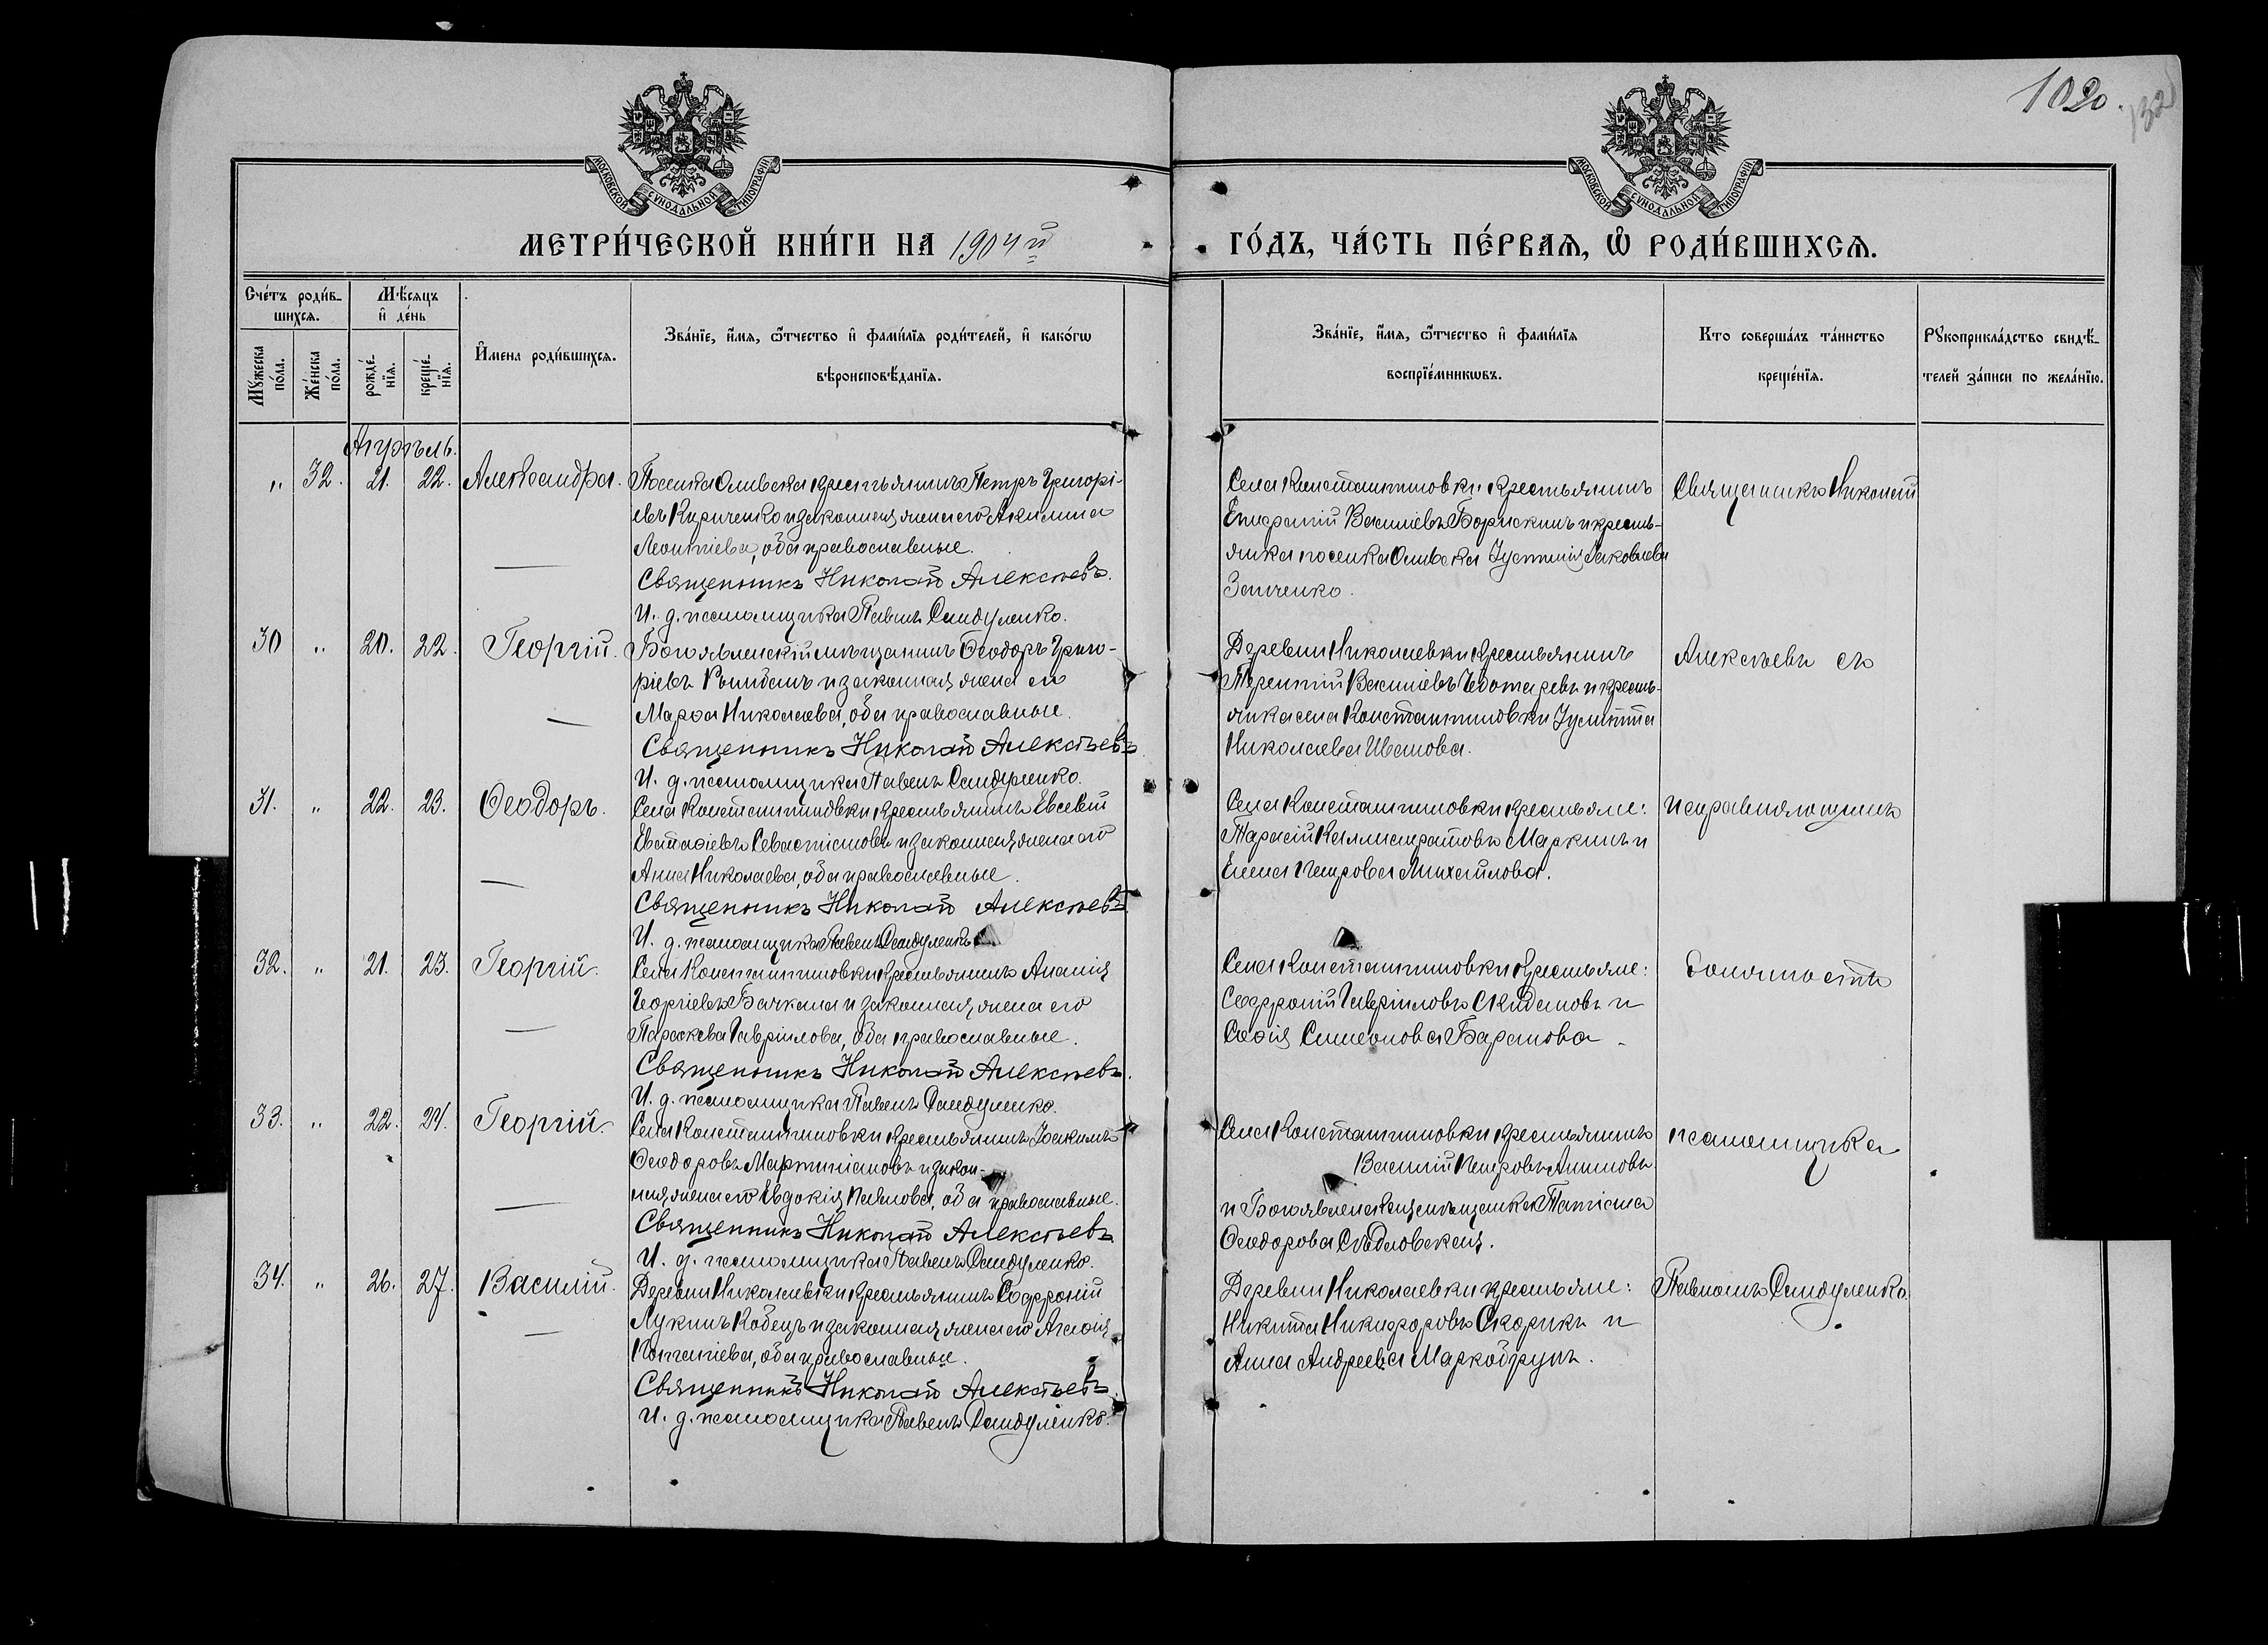 1020.
132
МОСКОВСКОЙ СУНОДАЛЬНОЙ ТИПОГРАФІИ
МОСКОВСКОЙ СУНОДАЛЬНОЙ ТИПОГРАФІИ
МЕТРИ́ЧЕСКОЙ КНИ́ГИ НА 1904й
ГО́ДЪ, ЧА́СТЬ ПЕ́РВАЯ, Ѡ РОДИ́ВШИХСЯ.
Сче́тъ роди́в-
шихся.
Мꙋжеска по́ла.
Же́нска по́ла.
Мѣ́сяцъ
и҆ де́нь
рожде́-
нїя.
креще́-
нїя.
И҆мена роди́вшихся.
Зва́нїе, и҆́мя, ѻ҆́тчество и҆ фами́лїя роди́телей, и҆ како́гѡ
вѣроисповѣ́данїя.
Зва́нїе, и҆́мя, ѻ҆́тчество и҆ фами́лїя
воспрїе́мникѡвъ.
Кто соверша́лъ та́инство
креще́нїя.
Рꙋкоприкла́дство свидѣ́-
телей за́писи по жела́нїю.
Апрѣль.
„ 32. 21. 22. Александра.
Поселка Ольвска крестьянинъ Петръ Григорі-
евъ Кириченко и законная жена его Акилина
Леонтіева, оба православные.
Священникъ Николай Алексѣевъ.
И. д. псаломщика Павелъ Сандуленко.
Села Константиновки крестьянинъ
Епифаній Василіевъ Борискинъ и кресть-
янка поселка Ольвска Іустинія Іаковлева
Зинченко.
Священникъ Николай
30 „ 20. 22. Георгій.
Богоявленскій мѣщанинъ Ѳеодоръ Григо-
ріевъ и законная жена его
Марѳа Николаева, оба православные.
Священникъ Николай Алексѣевъ
И. д. псаломщика Павелъ Сандуленко.
Деревни Николаевки крестьянинъ
Терентій Василіевъ Чеботаревъ и кресть-
янка села Константиновки Іулитта
Николаева Иванова.
Алексѣевъ съ
31. „ 22. 23. Ѳеодоръ.
Села Константиновки крестьянинъ Евсевій
Евстаѳіевъ Севастіановъ и законная жена его
Анна Николаева, оба православные.
Священникъ Николай Алексѣевъ.
И. д. псаломщика Павелъ Сандуленко
Села Константиновки крестьяне:
Тарасій Каллистратовъ Маркинъ и
Елена Петрова Михайлова.
исправляющимъ
32. „ 21. 23. Георгій.
Села Константиновки крестьянинъ Ананія
Георгіевъ Бачкала и законная жена его
Параскева Гавріилова, оба православные.
Священникъ Николай Алексѣевъ.
И. д. псаломщика Павелъ Сандуленко.
Села Константиновки крестьяне:
Софроній Гавріиловъ Скидановъ и
Софія Симеонова Баранова.
должность
33. „ 22. 24. Георгій.
Села Константиновки крестьянинъ Іоакимъ
Ѳеодоровъ Мартиніановъ и закон-
ная жена его Евдокія Павлова, оба православные.
Священникъ Николай Алексѣевъ.
И. д. псаломщика Павелъ Сандуленко.
Села Константиновки крестьянинъ
Василій Петровъ Антиповъ
и Богоявленская мѣщанка Татіана
Ѳеодорова Сѣдловская.
псаломщика
34. „ 26. 27. Василій.
Деревни Николаевки крестьянинъ Софроній
Лукинъ Кобецъ и законная жена его Агаѳія
Игнатіева, оба православные.
Священникъ Николай Алексѣевъ.
И. д. псаломщика Павелъ Сандуленко.
Деревни Николаевки крестьяне:
Никита Никифоровъ Скорикъ и
Анна Андреева Маркобрунъ.
Павломъ Сандуленко.